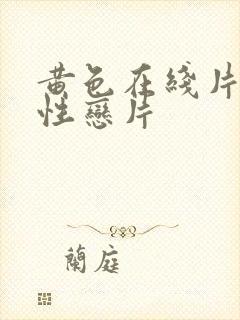 黄色在綫片
性戀片
蘭庭